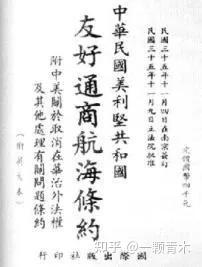 民國三十五年十一月四日在南京簽訂
民國三十五年十一月九日立法院批准
定價國幣四千元
中華民國美利堅共和國
友好通商航海條約
附中美關於取消在華治外法權
及其他處理有關問題條約
(附英文本)
國際出版社印行
知乎 @一颗青木